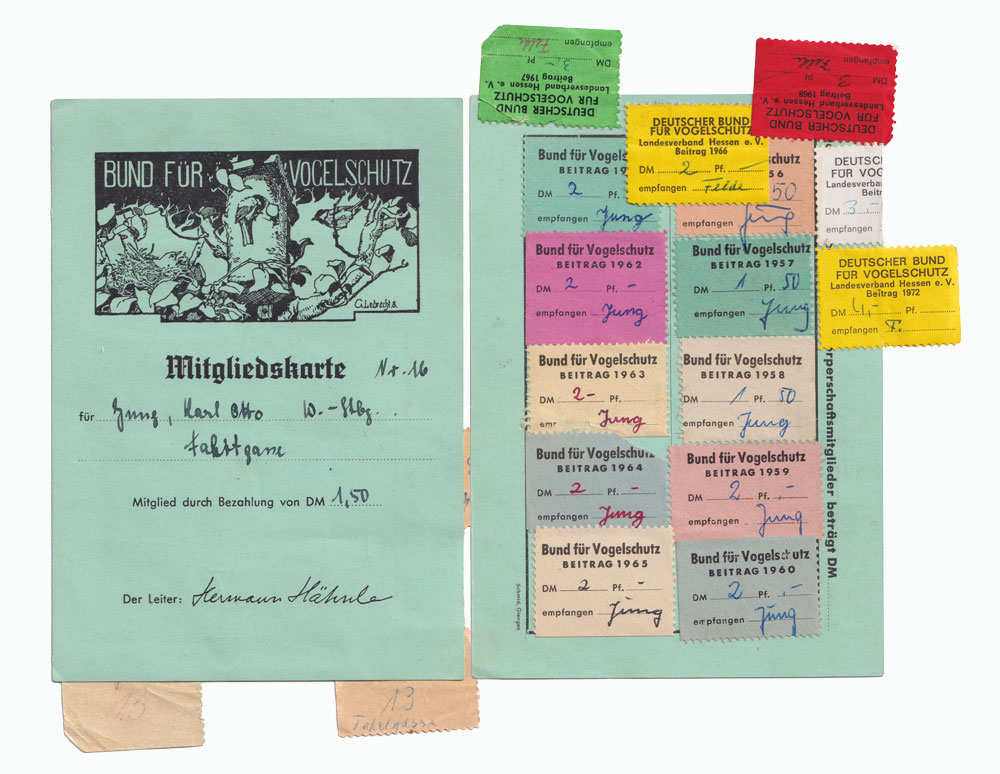 BUND FÜR VOGELSCHUTZ
G. Lebrecht S.
Mitgliedskarte Nr. 16
für Jung, Karl Otto W.-Stbg.
Mitglied durch Bezahlung von DM 1,50
Der Leiter: Hermann Hähnle
13
13
DEUTSCHER BUND
FÜR VOGELSCHUTZ
Landesverband Hessen e. V.
Beitrag 1967
DM 3,- Pf.
empfangen Felde
DEUTSCHER BUND
FÜR VOGELSCHUTZ
Landesverband Hessen e. V.
Beitrag 1968
DM 3. Pf.
empfangen Felde
DEUTSCHER BUND
FÜR VOGELSCHUTZ
Landesverband Hessen e. V.
Beitrag 1966
DM 2 Pf. -
empfangen Felde
Bund für Vogels
BEITRAG 19
DM 2
empfangen Jung
schutz
56
50
Jung
DEUTSC
FÜR VOG
Landesverba
Beitr
DM 3.-
empfangen
Bund für Vogelschutz
BEITRAG 1962
DM 2 Pf. -
empfangen Jung
Bund für Vogelschutz
BEITRAG 1957
DM 1 Pf. 50
empfangen Jung
DEUTSCHER BUND
FÜR VOGELSCHUTZ
Landesverband Hessen e. V.
Beitrag 1972
DM 4,- Pf.
empfangen F.
Bund für Vogelschutz
BEITRAG 1963
DM 2-
empfangen Jung
Bund für Vogelschutz
BEITRAG 1958
DM 1 Pf. 50
empfangen Jung
Bund für Vogelschutz
BEITRAG 1964
DM 2 Pf. -
empfangen Jung
Bund für Vogelschutz
BEITRAG 1959
DM 2 Pf. -
empfangen Jung
Bund für Vogelschutz
BEITRAG 1965
DM 2 Pf. -
empfangen Jung
Bund für Vogelschutz
BEITRAG 1960
DM 2 Pf. -
empfangen Jung
rperschaftsmitglieder beträgt DM